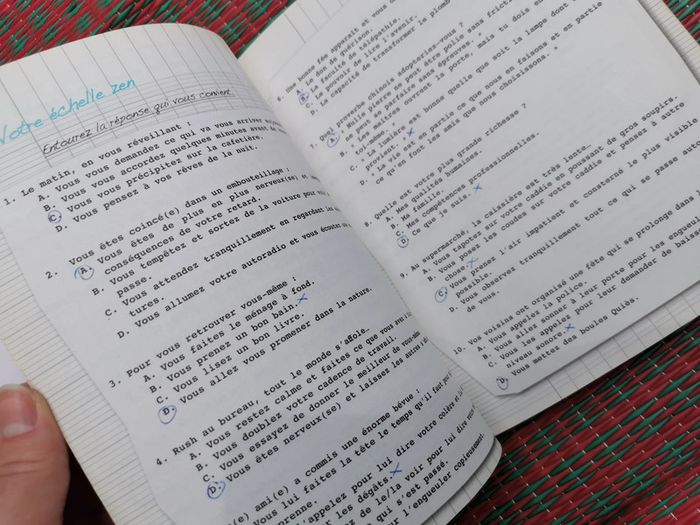 Votre échelle zen
Entourez la réponse qui vous convient.
1. Le matin, en vous réveillant :
A. Vous vous demandez ce qui va vous arriver
B. Vous vous accordez quelques minutes avant de
C. Vous vous précipitez sur la cafetière.
D. Vous pensez à vos rêves de la nuit.
2. Vous êtes coincé(e) dans un embouteillage :
A. Vous êtes de plus en plus nerveux(se) et
conséquences de votre retard.
B. Vous tempêtez et sortez de la voiture pour
passe.
C. Vous attendez tranquillement en regardant les
tures.
D. Vous allumez votre autoradio et vous écoutez
3. Pour vous retrouver vous-même :
A. Vous faites le ménage à fond.
B. Vous prenez un bon bain.
C. Vous lisez un bon livre.
D. Vous allez vous promener dans la nature.
4. Rush au bureau, tout le monde s'affole
A. Vous restez calme et faites ce que vous avez
B. Vous doublez votre cadence de travail.
C. Vous essayez de donner le meilleur de vous-même
D. Vous êtes nerveux(se) et laissez les autres
ami(e) a commis une énorme bévue :
Vous lui faites la tête le temps qu'il faut pour
l'appelez pour lui dire votre colère et
les dégâts.
de le/la voir pour lui dire
qui s'est passé.
l'engueuler copieusement.
6. Une bonne fée apparaît et vous
A. Le don de guérison.
B. La faculté de télépathie.
C. Le pouvoir de lire l'avenir.
D. La capacité de transformer le plomb
7. Quel proverbe chinois adopteriez-vous ?
A. Nulle pierre ne peut être polie sans
ne peut se parfaire sans épreuves.
B. Les maîtres ouvrent la porte, mais tu dois
toi-même.
C. « La lumière est bonne quelle que soit la lampe dont
provient. »
D. « La vie est en partie ce que nous en faisons et en partie
ce qu'en font les amis que nous choisissons. »
8. Quelle est votre plus grande richesse ?
A. Mes qualités humaines.
B. Ma famille.
C. Mes compétences professionnelles.
D. Ce que je suis.
9. Au supermarché, la caissière est très lente.
A. Vous tapotez sur votre caddie en poussant de gros soupirs.
B. Vous posez les coudes sur votre caddie et pensez à autre
chose.
C. Vous prenez l'air impatient et consterné le plus visible
possible.
D. Vous observez tranquillement tout ce qui se passe autour
de vous.
10. Vos voisins ont organisé une fête qui se prolonge dans
A. Vous appelez la police.
B. Vous allez sonner à leur porte pour les engueuler
C. Vous les appelez pour leur demander de baisser
niveau sonore.
D. Vous mettez des boules Quiès.